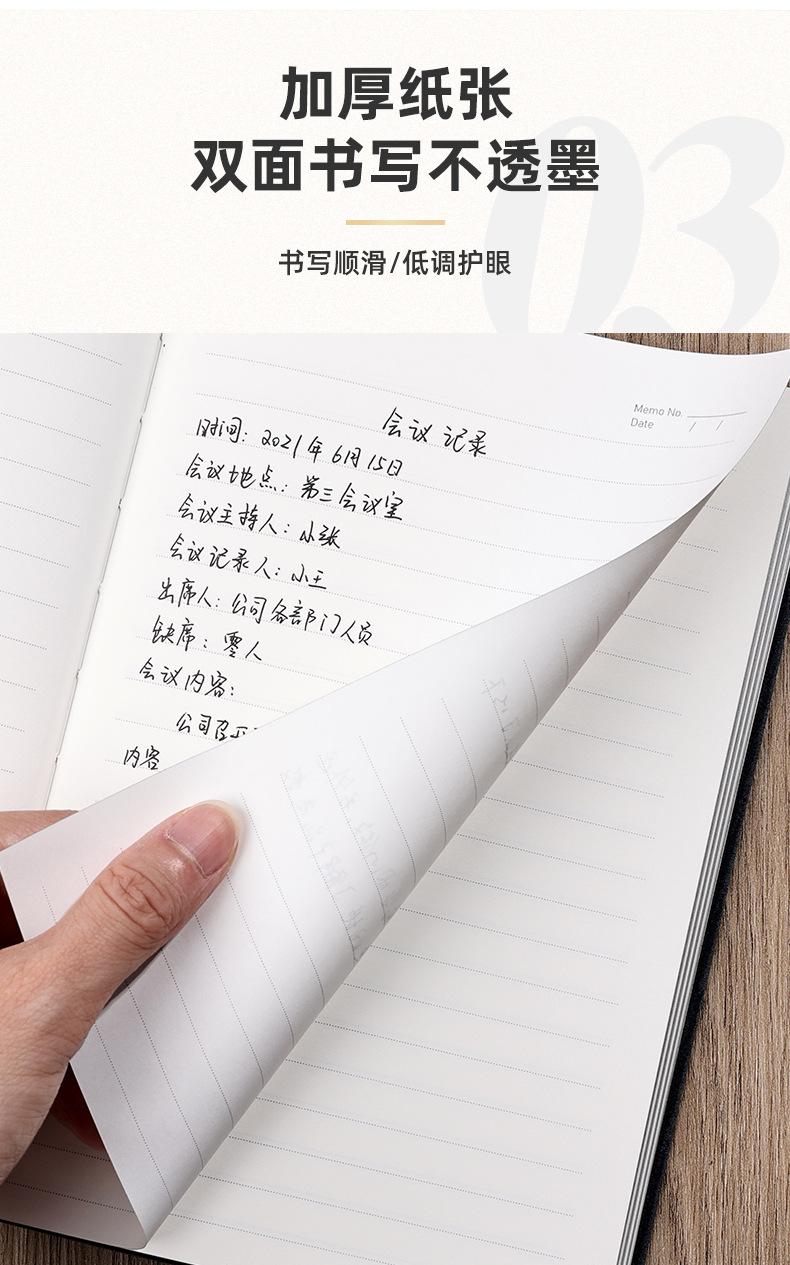 加厚纸张
双面书写不透墨
书写顺滑/低调护眼
03
Memo No.
Date / /
会议记录
时间：2021年6月15日
会议地点：第三会议室
会议主持人：小张
会议记录人：小王
出席人：公司各部门人员
缺席：零人
会议内容：
公司召开
内容